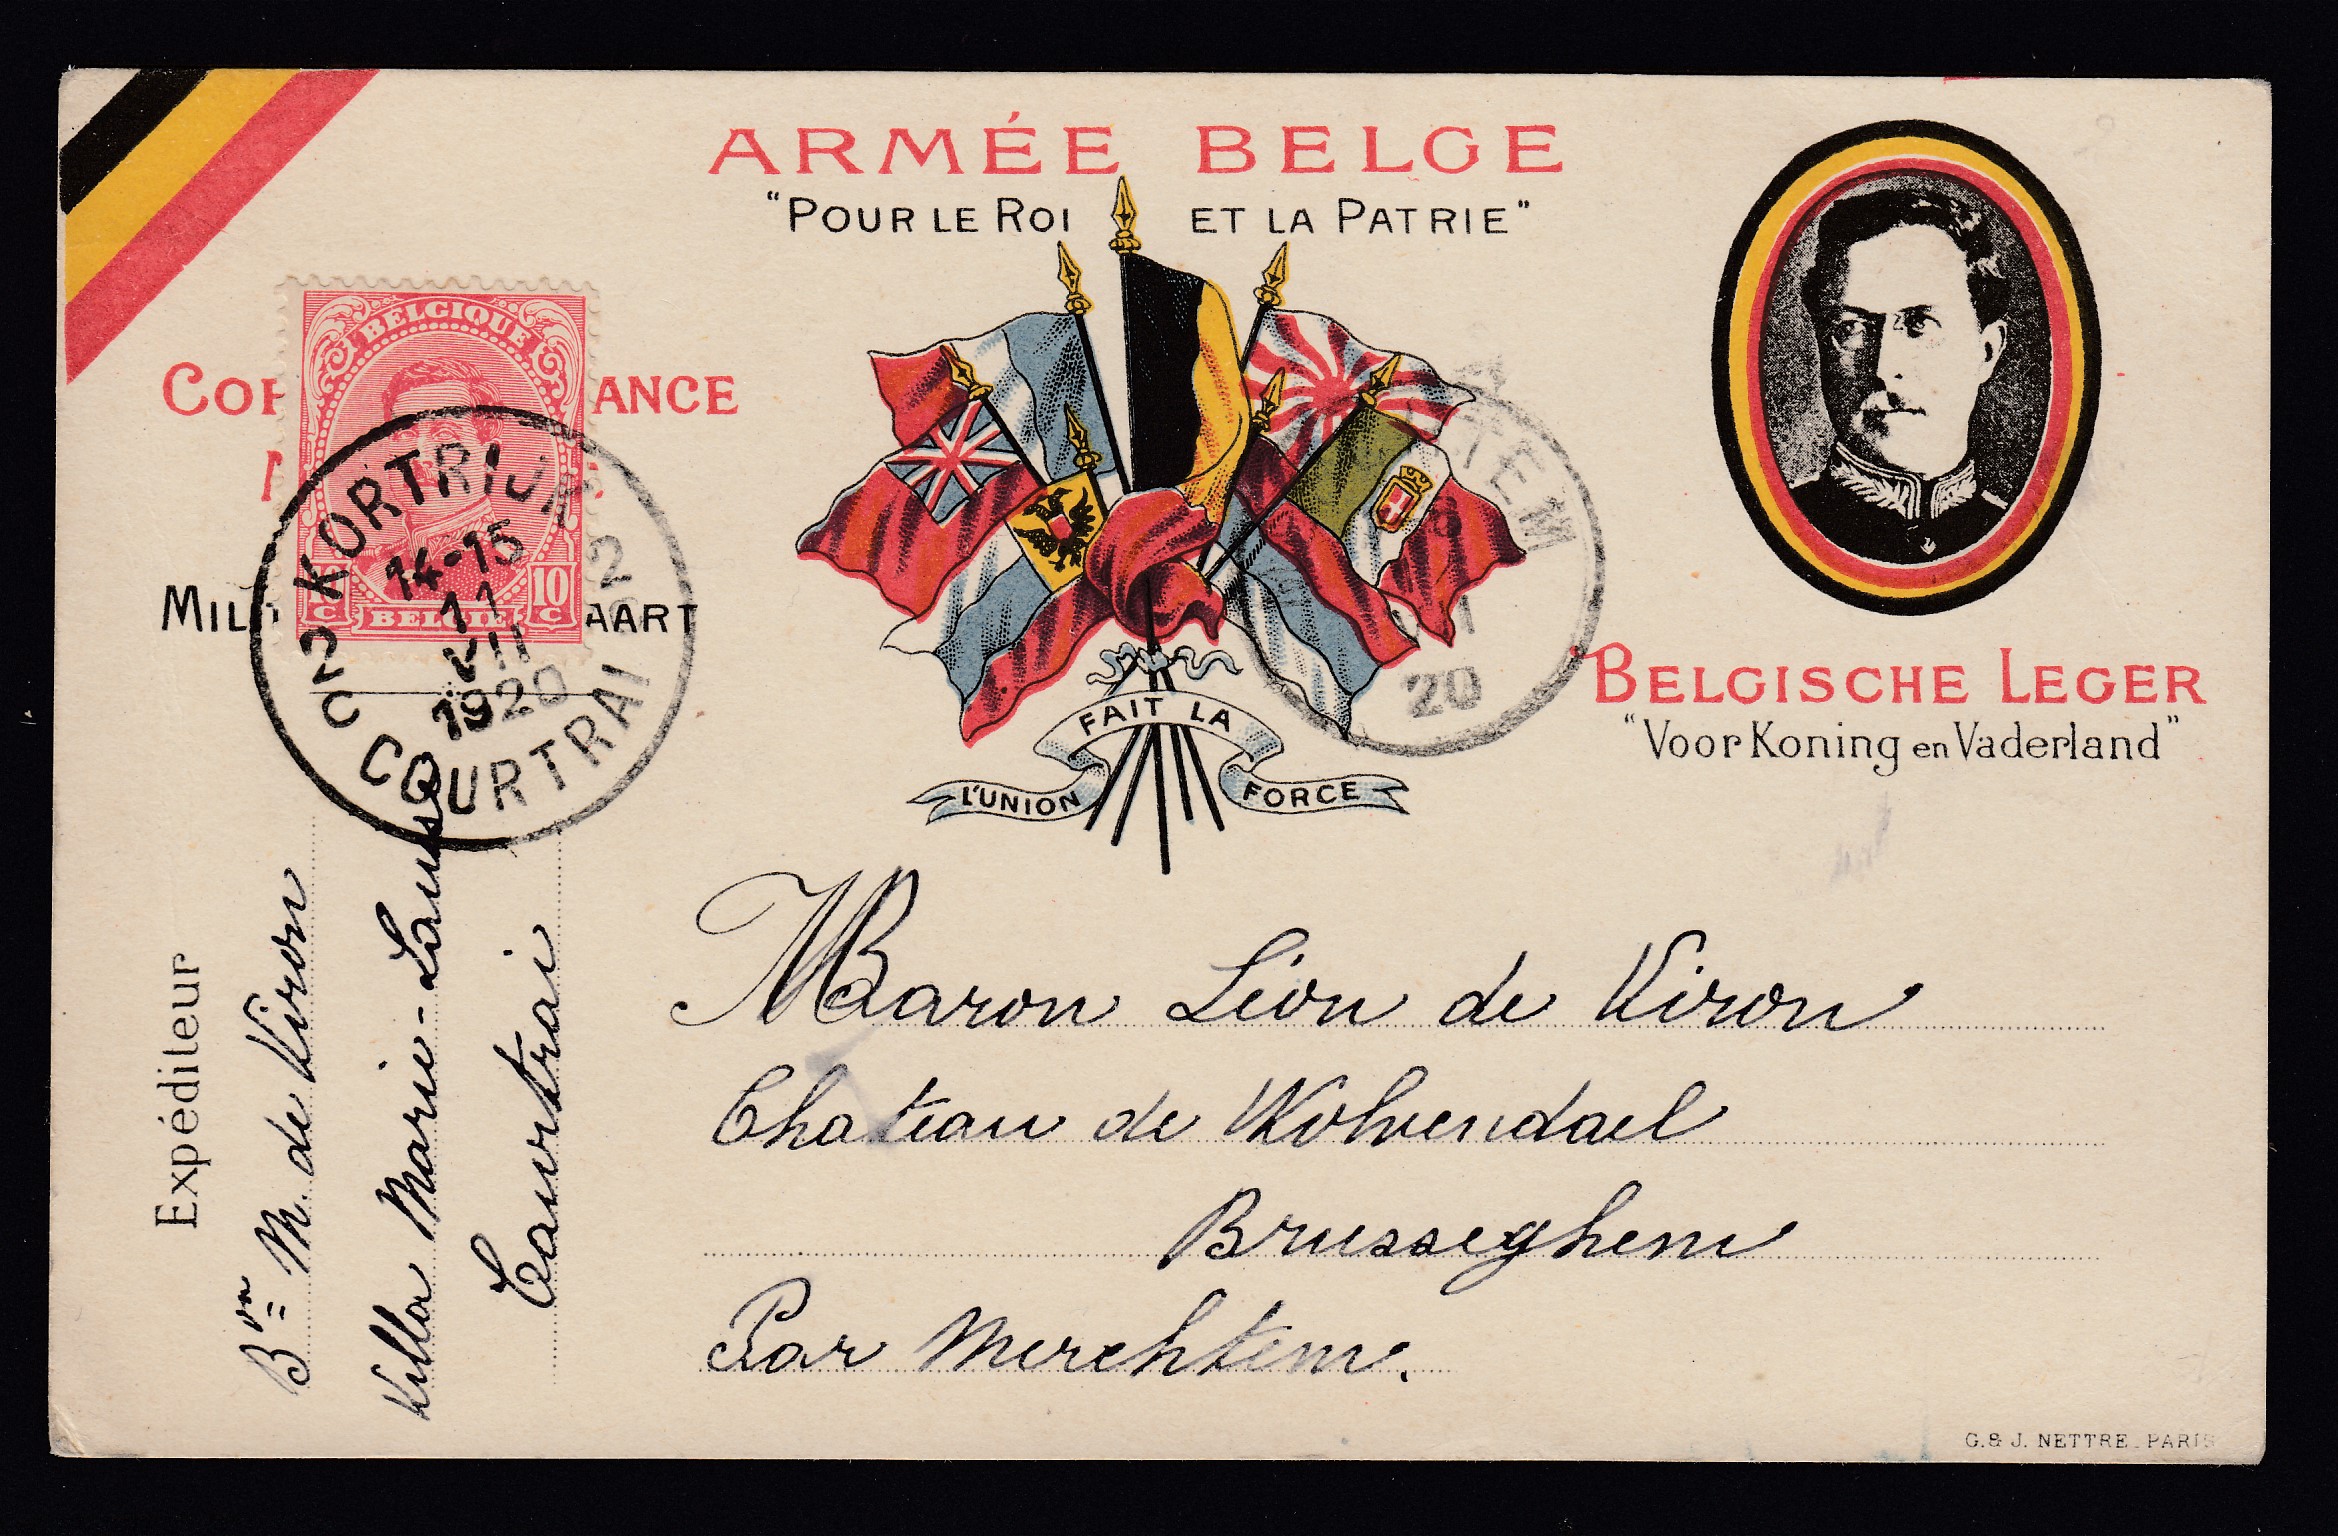 ARMÉE BELGE
"POUR LE ROI ET LA PATRIE"
BELGIQUE
COR ANCE
10 C BELGIE 10 C
MILI AART
KORTRIJK 2
14-15
11
II
1920
2 COURTRAI
TEM
20
L'UNION FAIT LA FORCE
BELGISCHE LEGER
"Voor Koning en Vaderland"
Expéditeur
Bon M. de Kiron
Villa Marie-Louise
Courtrai
Baron Léon de Viron
Chateau de Wolvendael
Brusseghem
Par Merchtem.
G. & J. NETTRE_PARIS